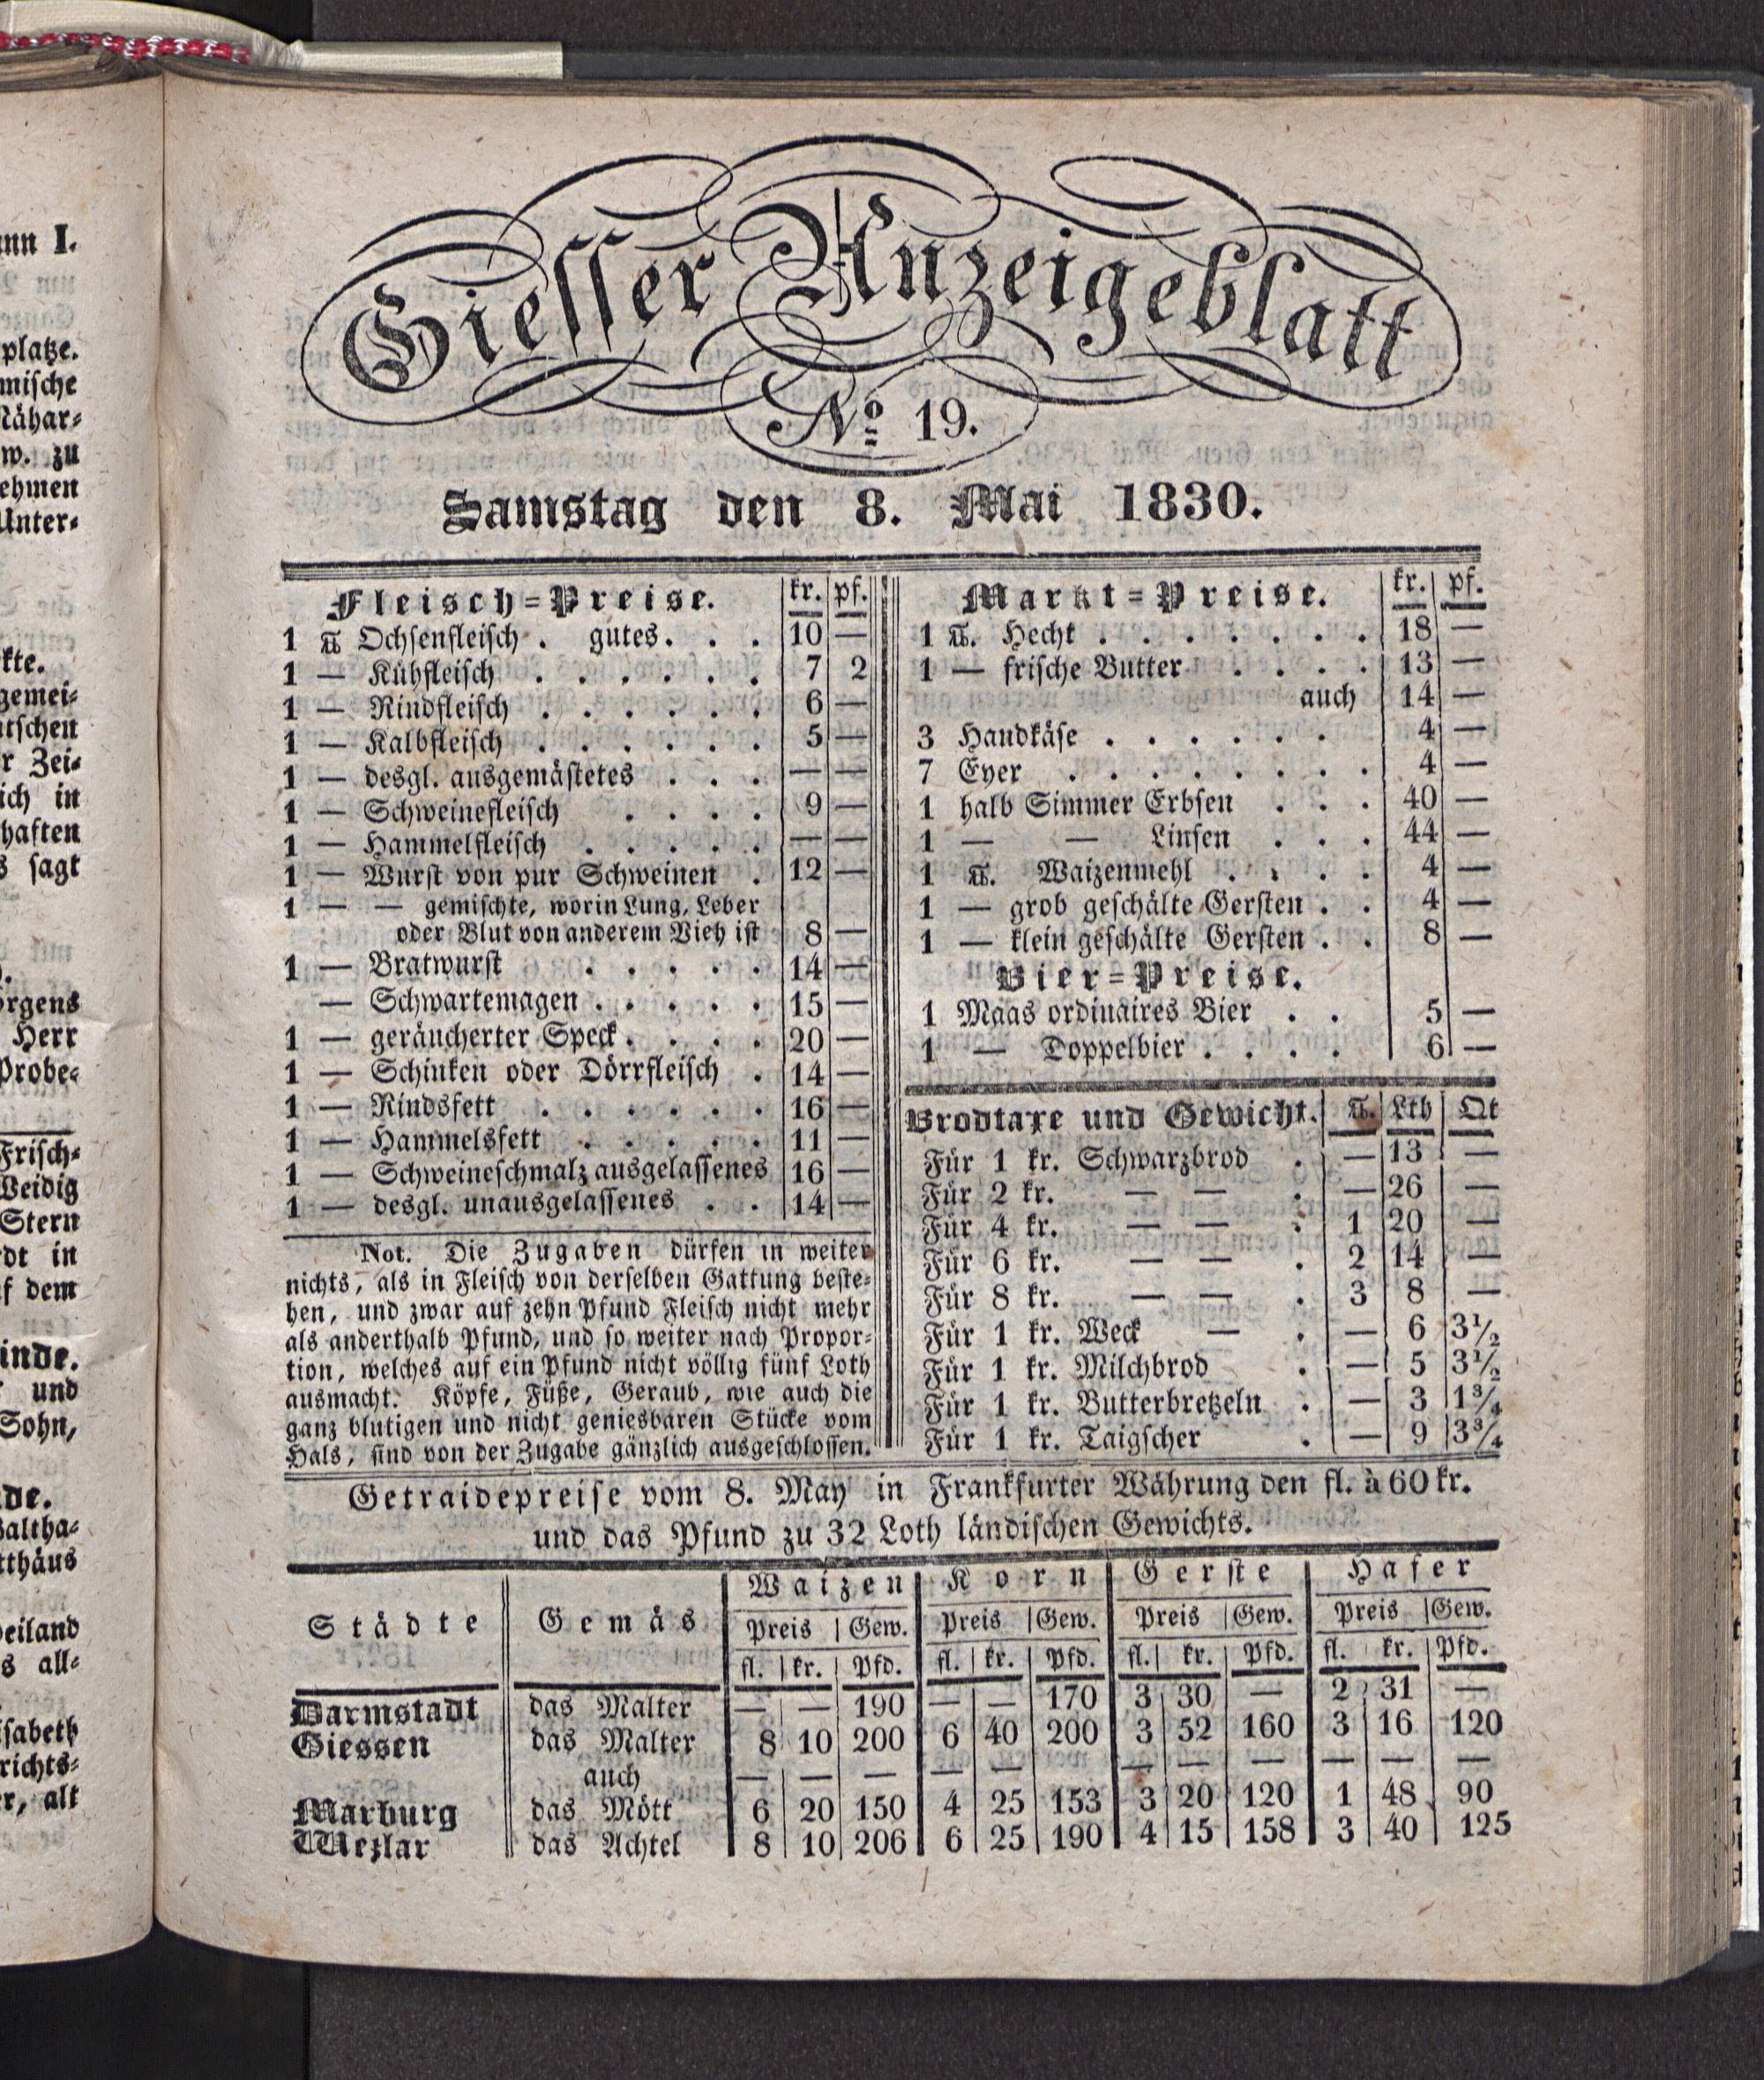 ann I.
platze.
mische
Nähar-
w. zu
ehmen
Unter-
kte.
gemei-
utschen
r Zei-
ich in
haften
s sagt
örgens
Herr
Probe-
Frisch-
Weidig
Stern
dt in
f dem
inde.
und
Sohn,
de.
Baltha-
tthäus
weiland
s all-
isabeth
richts-
er, alt
Giesser Anzeigeblatt
No 19.
Samstag den 8. Mai 1830.
Fleisch-Preise. kr. pf.
1 ℔ Ochsenfleisch . gutes. . . 10 —
1 — Kühfleisch . . . . . . 7 2
1 — Rindfleisch . . . . . . 6 —
1 — Kalbfleisch . . . . . . 5 —
1 — desgl. ausgemästetes . . . — —
1 — Schweinefleisch . . . . 9 —
1 — Hammelfleisch . . . . . — —
1 — Wurst von pur Schweinen . 12 —
1 — — gemischte, worin Lung, Leber
oder Blut von anderem Vieh ist 8 —
1 — Bratwurst . . . . . 14 —
— Schwartemagen . . . . . 15 —
1 — geräucherter Speck . . . . 20 —
1 — Schinken oder Dörrfleisch . 14 —
1 — Rindsfett . . . . . . 16 —
1 — Hammelsfett . . . . . 11 —
1 — Schweineschmalz ausgelassenes 16 —
1 — desgl. unausgelassenes . . 14 —
Not. Die Zugaben dürfen in weiter
nichts, als in Fleisch von derselben Gattung beste-
hen, und zwar auf zehn Pfund Fleisch nicht mehr
als anderthalb Pfund, und so weiter nach Propor-
tion, welches auf ein Pfund nicht völlig fünf Loth
ausmacht. Köpfe, Füße, Geraub, wie auch die
ganz blutigen und nicht geniesbaren Stücke vom
Hals, sind von der Zugabe gänzlich ausgeschlossen.
Markt-Preise. kr. pf.
1 ℔. Hecht . . . . . . . 18 —
1 — frische Butter . . . . 13 —
auch 14 —
3 Handkäse . . . . . . 4 —
7 Eyer . . . . . . . . 4 —
1 halb Simmer Erbsen . . . 40 —
1 — — Linsen . . . 44 —
1 ℔. Waizenmehl . . . . 4 —
1 — grob geschälte Gersten . . 4 —
1 — klein geschälte Gersten . . 8 —
Bier-Preise.
1 Maas ordinaires Bier . . 5 —
1 — Doppelbier . . . . 6 —
Brodtaxe und Gewicht. ℔. Lth Qt
Für 1 kr. Schwarzbrod . — 13 —
Für 2 kr. — — . — 26 —
Für 4 kr. — — . 1 20 —
Für 6 kr. — — . 2 14 —
Für 8 kr. — — . 3 8 —
Für 1 kr. Weck — . — 6 3½
Für 1 kr. Milchbrod . — 5 3½
Für 1 kr. Butterbretzeln . — 3 1¾
Für 1 kr. Taigscher . — 9 3¾
Getraidepreise vom 8. May in Frankfurter Währung den fl. à 60 kr.
und das Pfund zu 32 Loth ländischen Gewichts.
Städte Gemäs Waizen Korn Gerste Hafer
Preis Gew. Preis Gew. Preis Gew. Preis Gew.
fl. kr. Pfd. fl. kr. Pfd. fl. kr. Pfd. fl. kr. Pfd.
Darmstadt das Malter — — 190 — — 170 3 30 — 2 31 —
Giessen das Malter 8 10 200 6 40 200 3 52 160 3 16 120
auch — — — — — — — — — — —
Marburg das Mött 6 20 150 4 25 153 3 20 120 1 48 90
Wezlar das Achtel 8 10 206 6 25 190 4 15 158 3 40 125